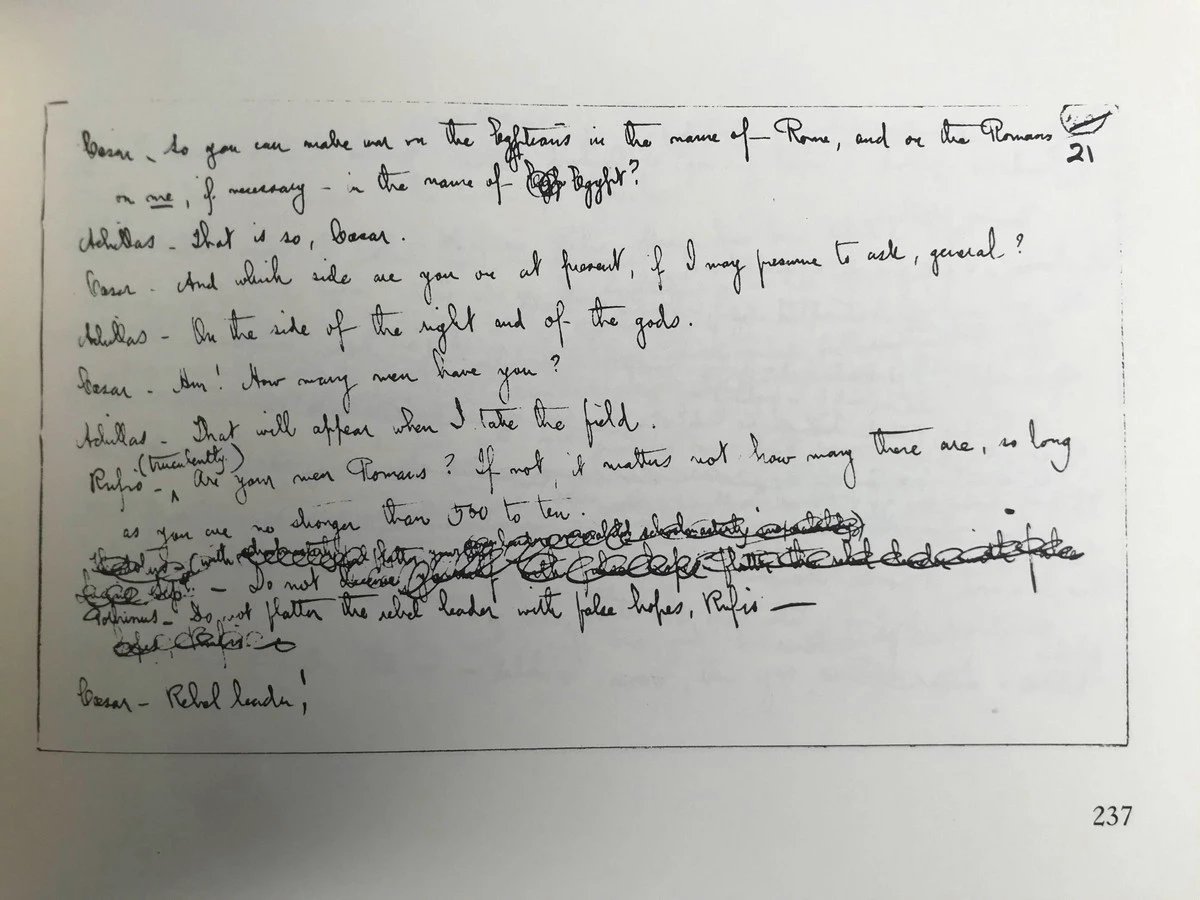 Cæsar - So you can make war on the Egyptians in the name of Rome, and on the Romans
21
on me, if necessary - in the name of Egypt?
Achillas - That is so, Cæsar.
Cæsar - And which side are you on at present, if I may presume to ask, general?
Achillas - On the side of the right and of the gods.
Cæsar - Hm! How many men have you?
Achillas - That will appear when I take the field.
(truculently)
Rufio - Are your men Romans? If not, it matters not how many there are, so long
as you are no stronger than 500 to ten.
(with
- Do not
Pothinus - Do not flatter the rebel leader with false hopes, Rufio —
Cæsar - Rebel leader!
237